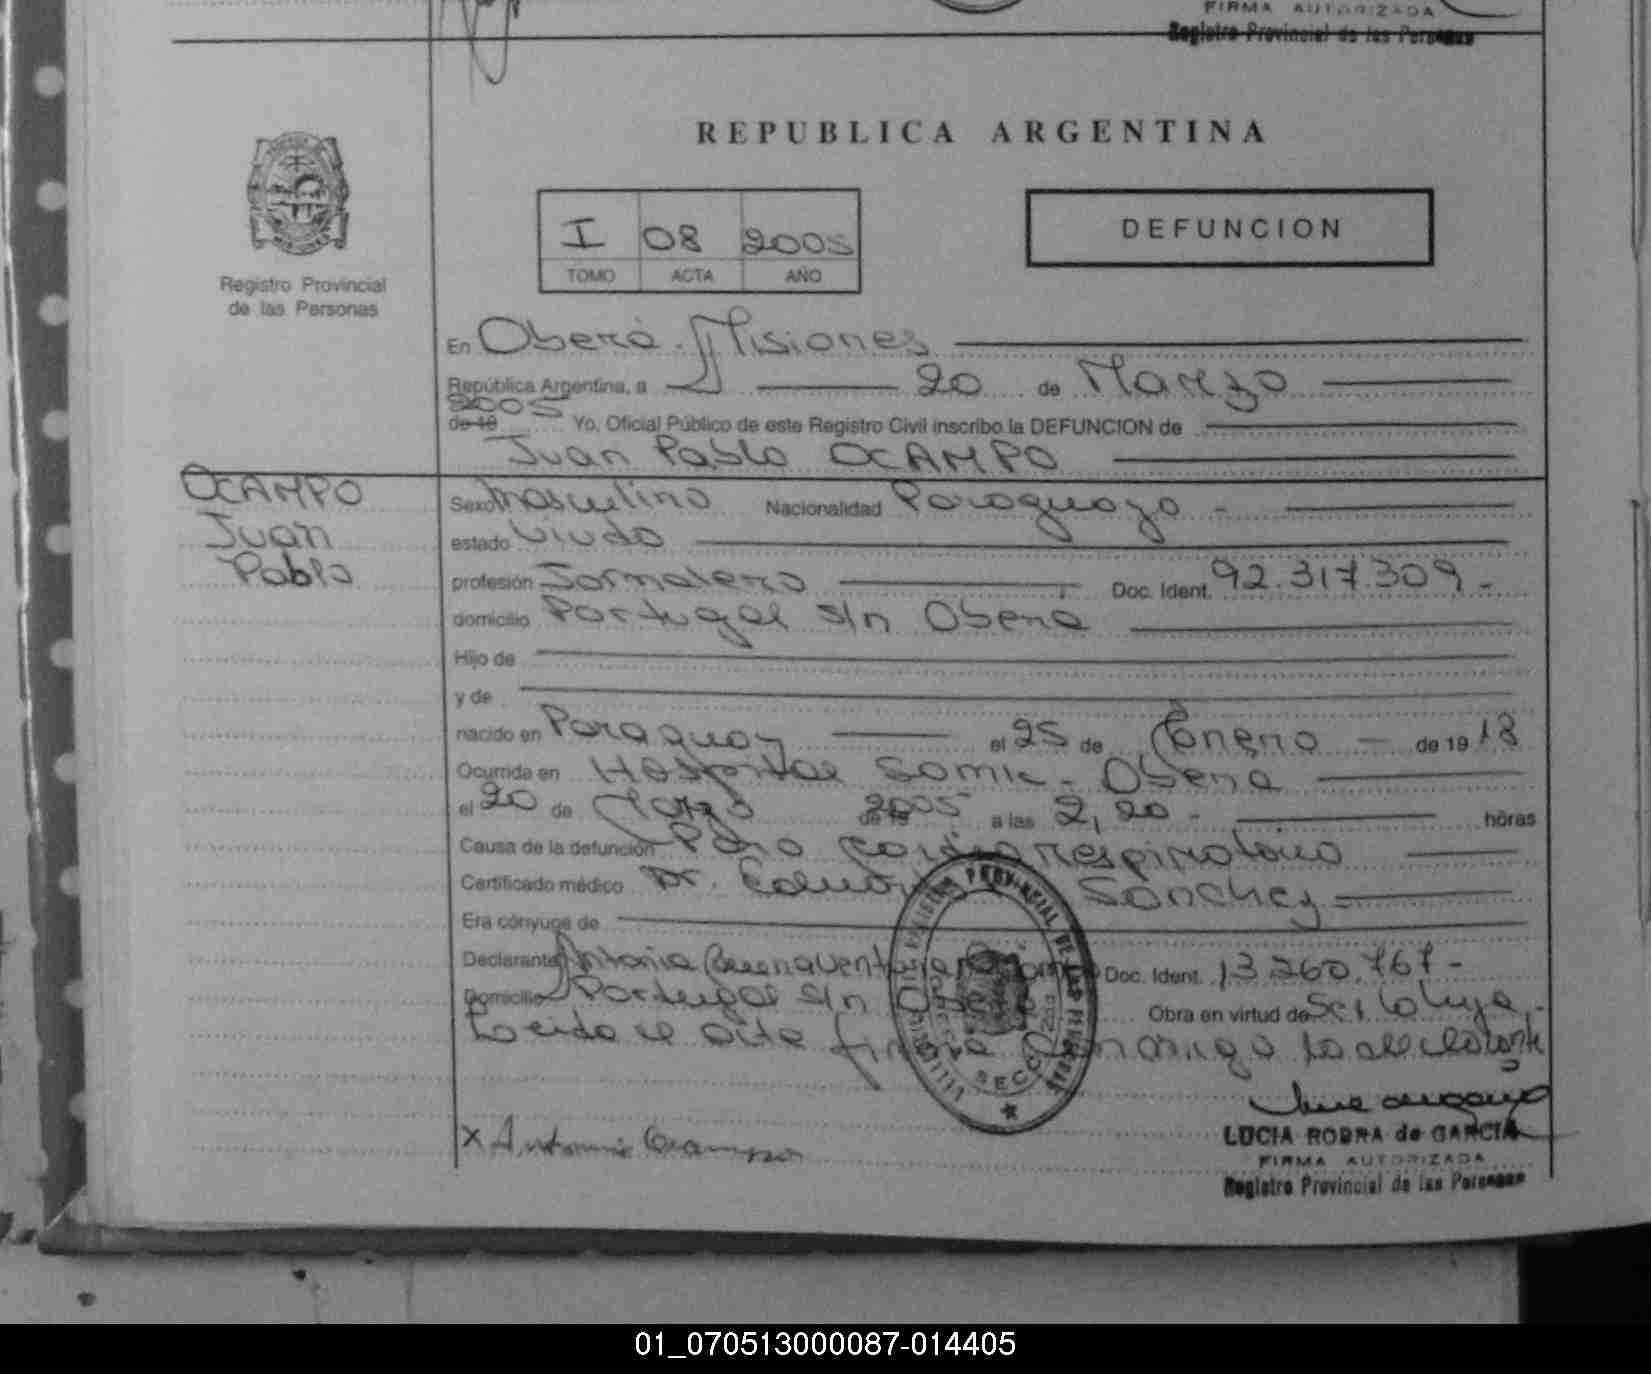 FIRMA AUTORIZADA
Registro Provincial de las Personas
REPUBLICA ARGENTINA
I 08 2005
TOMO ACTA AÑO
DEFUNCION
Registro Provincial
de las Personas
En Oberá. Misiones
República Argentina, a 20 de Marzo
2005
de 19 Yo, Oficial Público de este Registro Civil inscribo la DEFUNCION de
Juan Pablo OCAMPO
OCAMPO
Juan
Pablo
Sexo Masculino Nacionalidad Paraguaya -
estado Viudo
profesión Jornalero Doc. Ident. 92.317.309.-
domicilio Portugal s/n Oberá
Hijo de
y de
nacido en Paraguay el 25 de Enero de 19 18
Ocurrida en Hospital Samic - Oberá
el 20 de Marzo de 19 2005 a las 2,20 - horas
Causa de la defunción Paro Cardiorespiratorio
Certificado médico Dr. Eduardo Sanchez
Era cónyuge de
Declarante Antonia Buenaventura Ocampo Doc. Ident. 13.260.767-
Domicilio Portugal s/n Oberá Obra en virtud de Ser la hija.
Leida el acta firma conmigo la declarante
REGISTRO PROVINCIAL DE LAS PERSONAS
SECC
X Antonia Ocampo
LUCIA ROBRA de GARCIA
FIRMA AUTORIZADA
Registro Provincial de las Personas
01_070513000087-014405